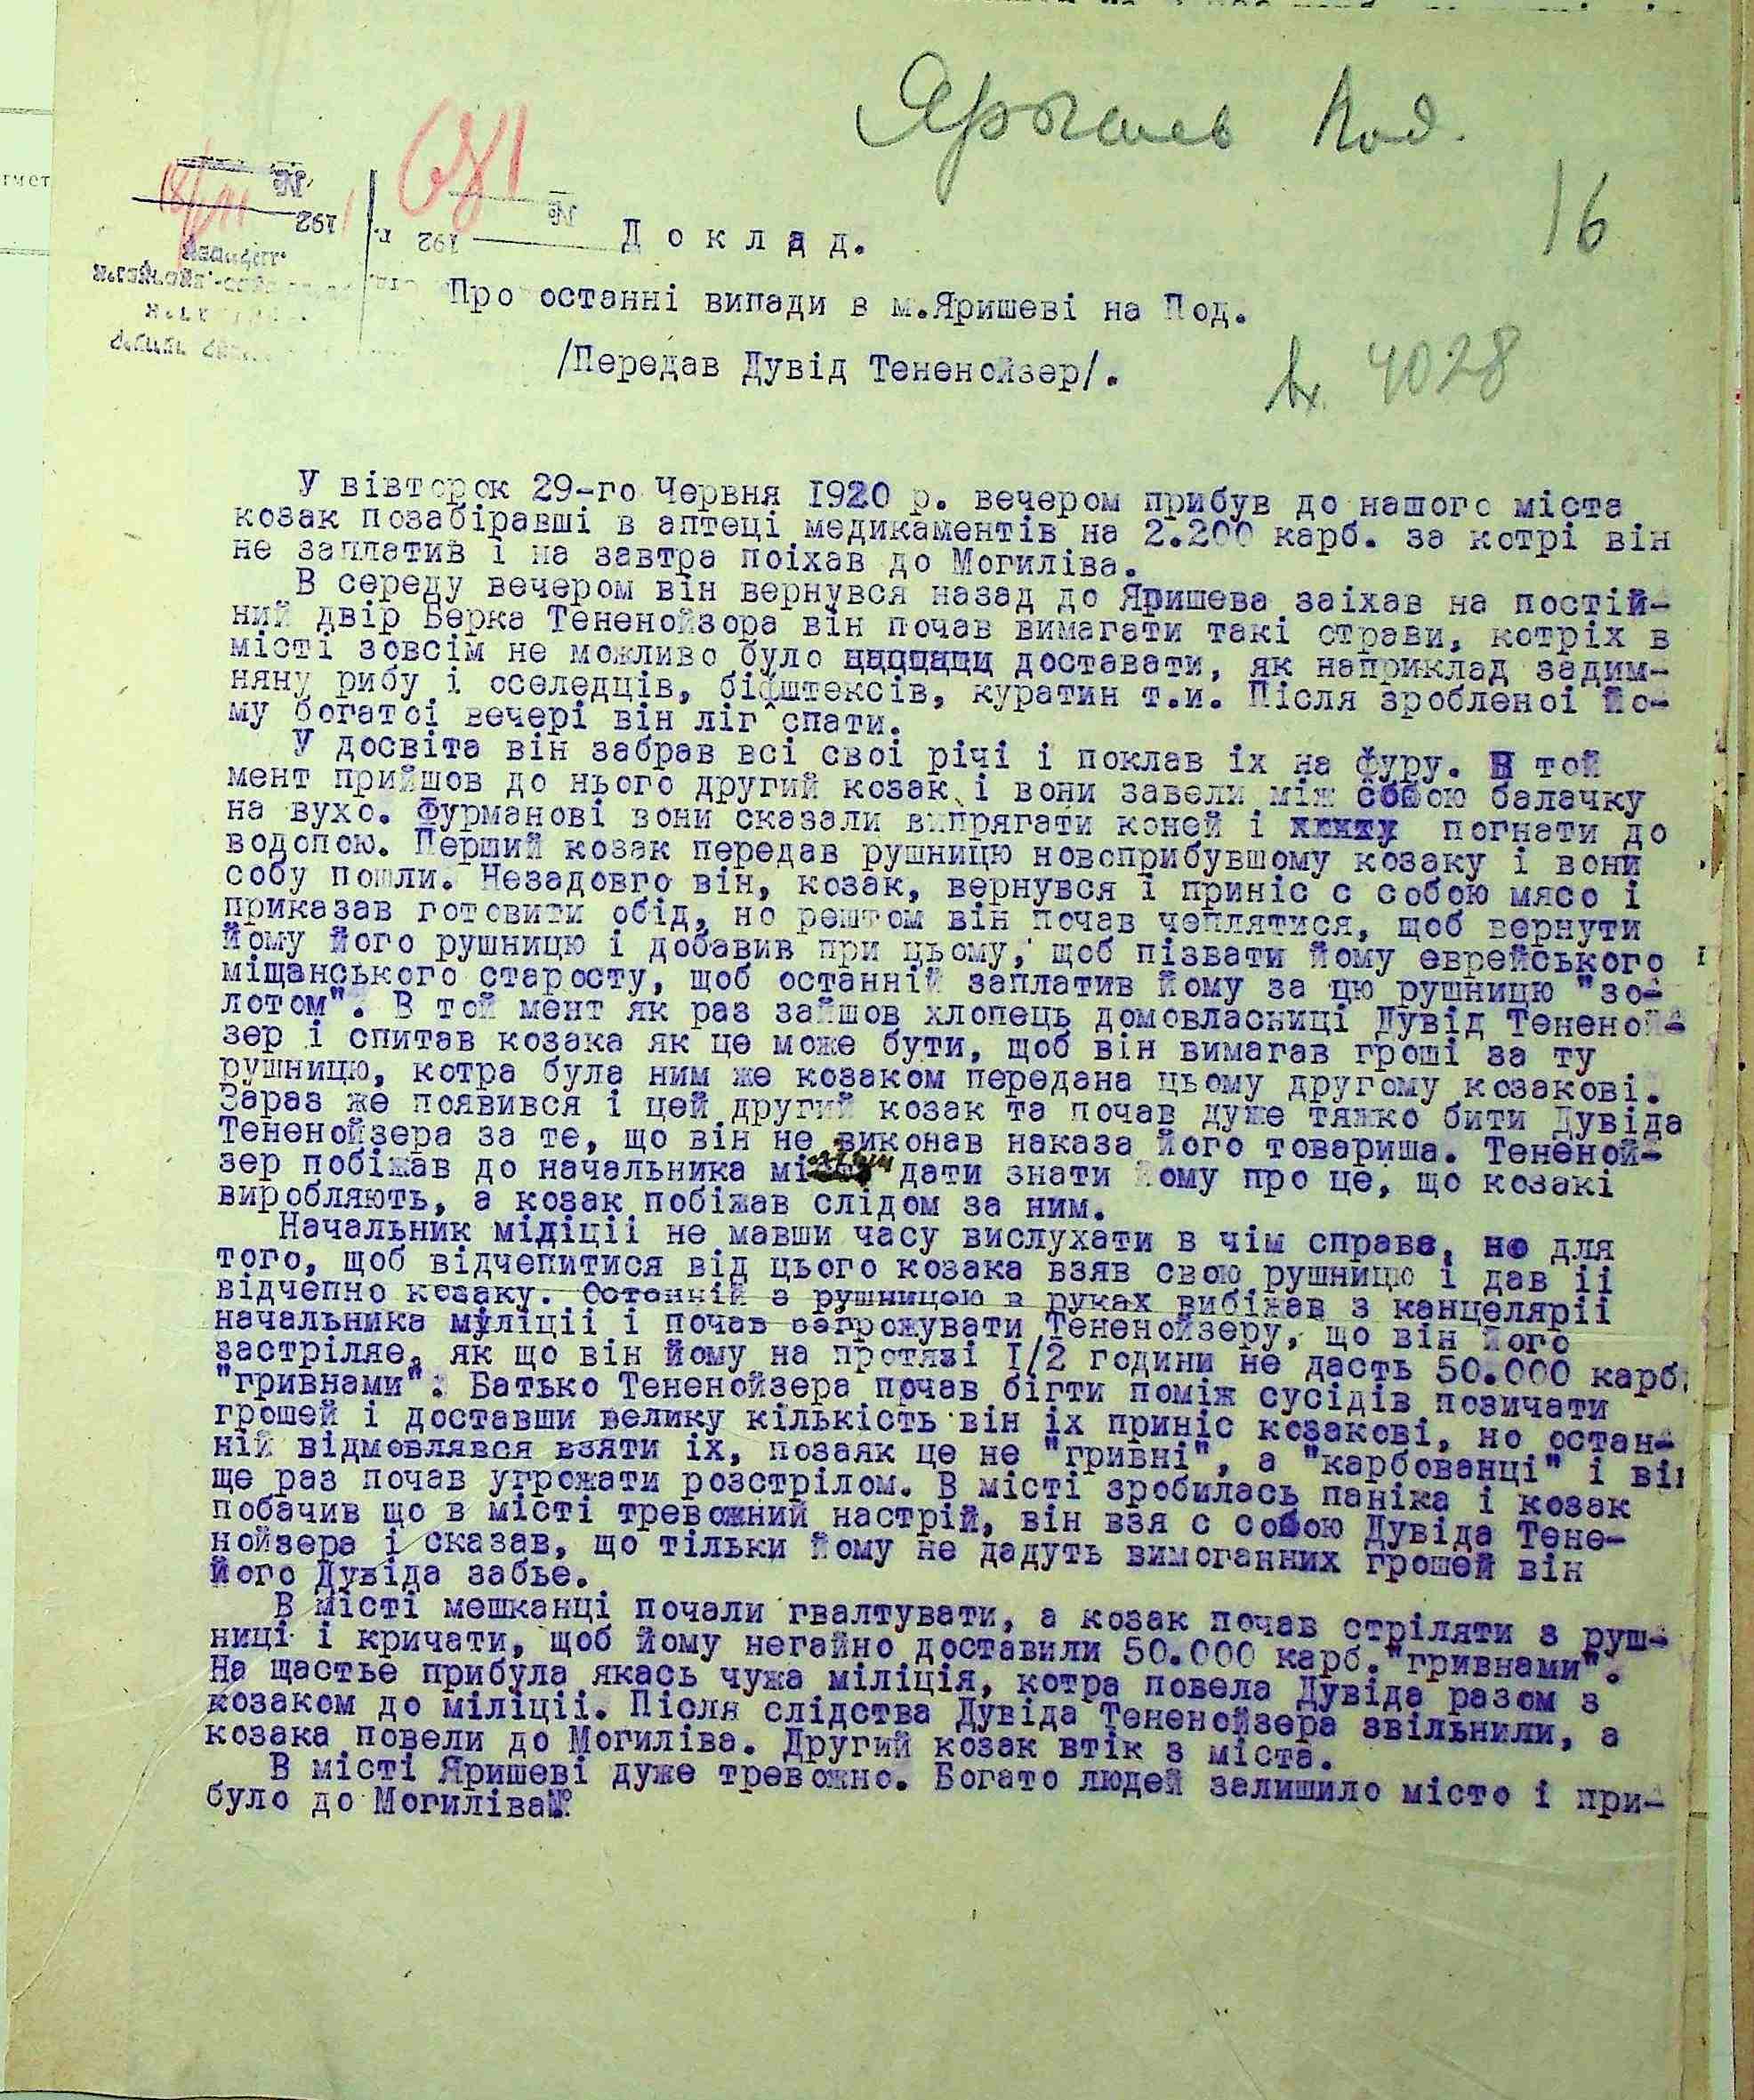 Ярышев Под.
16
681
№
192
№
192 г.
Доклад.
Про останні випади в м.Яришеві на Под.
/Передав Дувід Тененойзер/.
Вх. 4028
У вівторок 29-го Червня 1920 р. вечером прибув до нашого міста
козак позабіравші в аптеці медикаментів на 2.200 карб. за котрі він
не заплатив і на завтра поіхав до Могиліва.
В середу вечером він вернувся назад до Яришева заіхав на постій-
ний двір Берка Тененойзора він почав вимагати такі страви, котріх в
місті зовсім не можливо було доставати, як наприклад задим-
няну рибу і оселедців, біфштексів, куратин т.и. Після зробленоі йо-
му богатоі вечері він ліг спати.
У досвіта він забрав всі своі річі і поклав іх на фуру. В той
мент прийшов до нього другий козак і вони завели між собою балачку
на вухо. Фурманові вони сказали випрягати коней і погнати до
водопою. Перший козак передав рушницю новоприбувшому козаку і вони
собу пошли. Незадовго він, козак, вернувся і приніс с собою мясо і
приказав готовити обід, но рештом він почав чеплятися, щоб вернути
йому його рушницю і добавив при цьому, щоб пізвати йому еврейського
міщанського старосту, щоб останній заплатив йому за цю рушницю "зо-
лотом". В той мент як раз зайшов хлопець домовласниці Дувід Тененой-
зер і спитав козака як це може бути, щоб він вимагав гроші за ту
рушницю, котра була ним же козаком передана цьому другому козакові.
Зараз же появився і цей другий козак та почав дуже тяжко бити Дувіда
Тененойзера за те, що він не виконав наказа його товариша. Тененой-
зер побіжав до начальника дати знати йому про це, що козакі
виробляють, а козак побіжав слідом за ним.
Начальник міліціі не мавши часу вислухати в чім справа, но для
того, щоб відчепитися від цього козака взяв свою рушницю і дав іі
відчепно козаку. Останній з рушницею в руках вибіжав з канцеляріі
начальника міліціі і почав загрожувати Тененойзеру, що він його
застріляе, як що він йому на протязі I/2 години не дасть 50.000 карб.
"гривнами". Батько Тененойзера почав бігти поміж сусідів позичати
грошей і доставши велику кількість він іх приніс козакові, но остан-
ній відмовлявся взяти іх, позаяк це не "гривні", а "карбованці" і він
ще раз почав угрожати розстрілом. В місті зробилась паніка і козак
побачив що в місті тревожний настрій, він взя с собою Дувіда Тене-
нойзера і сказав, що тільки йому не дадуть вимоганних грошей він
його Дувіда забье.
В місті мешканці почали гвалтувати, а козак почав стріляти з руш-
ниці і кричати, щоб йому негайно доставили 50.000 карб."гривнами".
На щастье прибула якась чужа міліція, котра повела Дувіда разом з
козаком до міліціі. Після слідства Дувіда Тененойзера звільнили, а
козака повели до Могиліва. Другий козак втік з міста.
В місті Яришеві дуже тревожно. Богато людей залишило місто і при-
було до Могиліва.